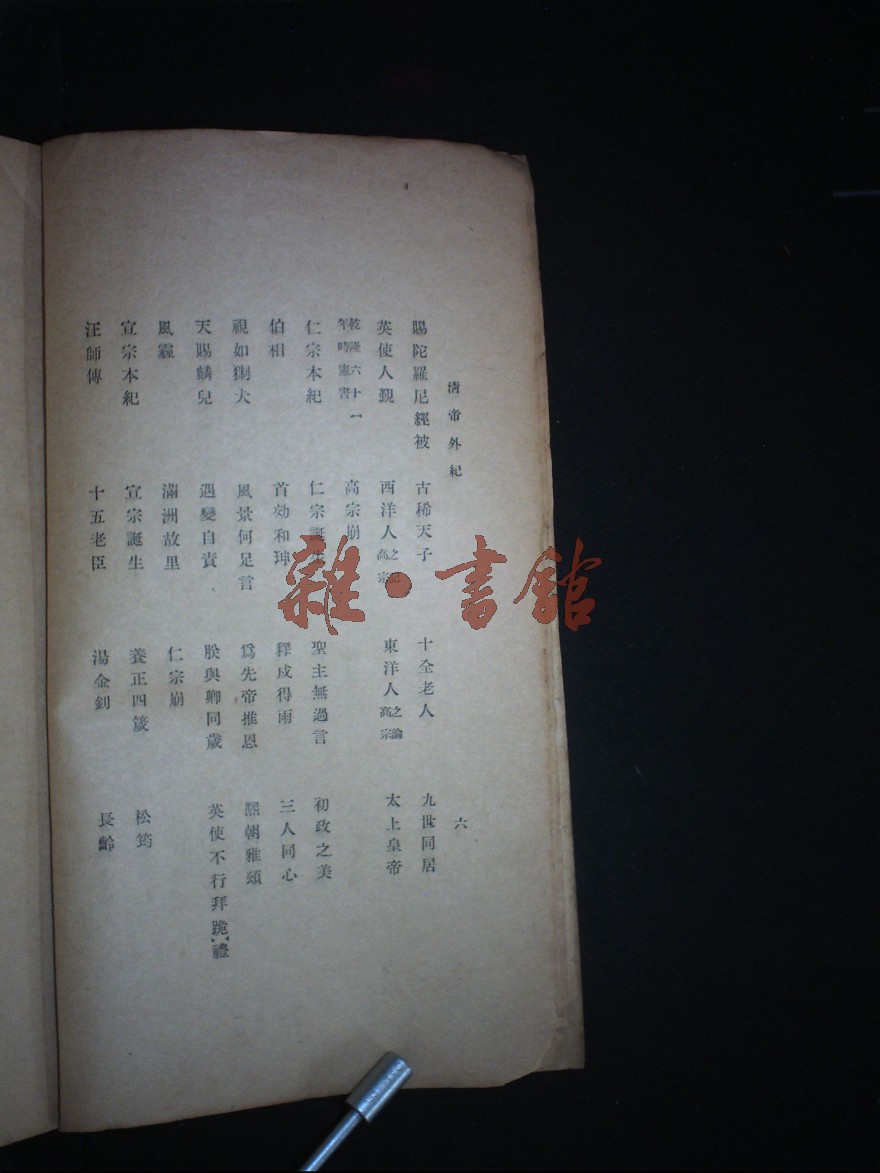 清帝外紀 六
賜陀羅尼經被 古稀天子 十全老人 九世同居
英使人覲 西洋人之紀高宗 東洋人之論高宗 太上皇帝
乾隆六十一年時憲書 高宗崩
仁宗本紀 仁宗誕生 聖主無過言 初政之美
伯相 首劾和珅 釋戍得雨 三人同心
視如猘犬 風景何足言 爲先帝推恩 熙朝雅頌
天賜麟兒 遇變自責 朕與卿同歲 英使不行拜跪禮
風霾 滿洲故里 仁宗崩
宣宗本紀 宣宗誕生 養正四箴 松筠
汪師傅 十五老臣 湯金釗 長齡
雜·書館